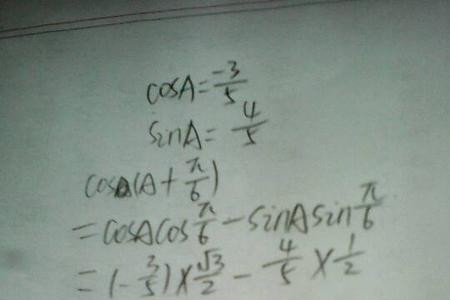 cosA=-3/5
sinA=4/5
cos(A+π/6)
=cosAcosπ/6-sinAsinπ/6
=(-3/5)×√3/2-4/5×1/2